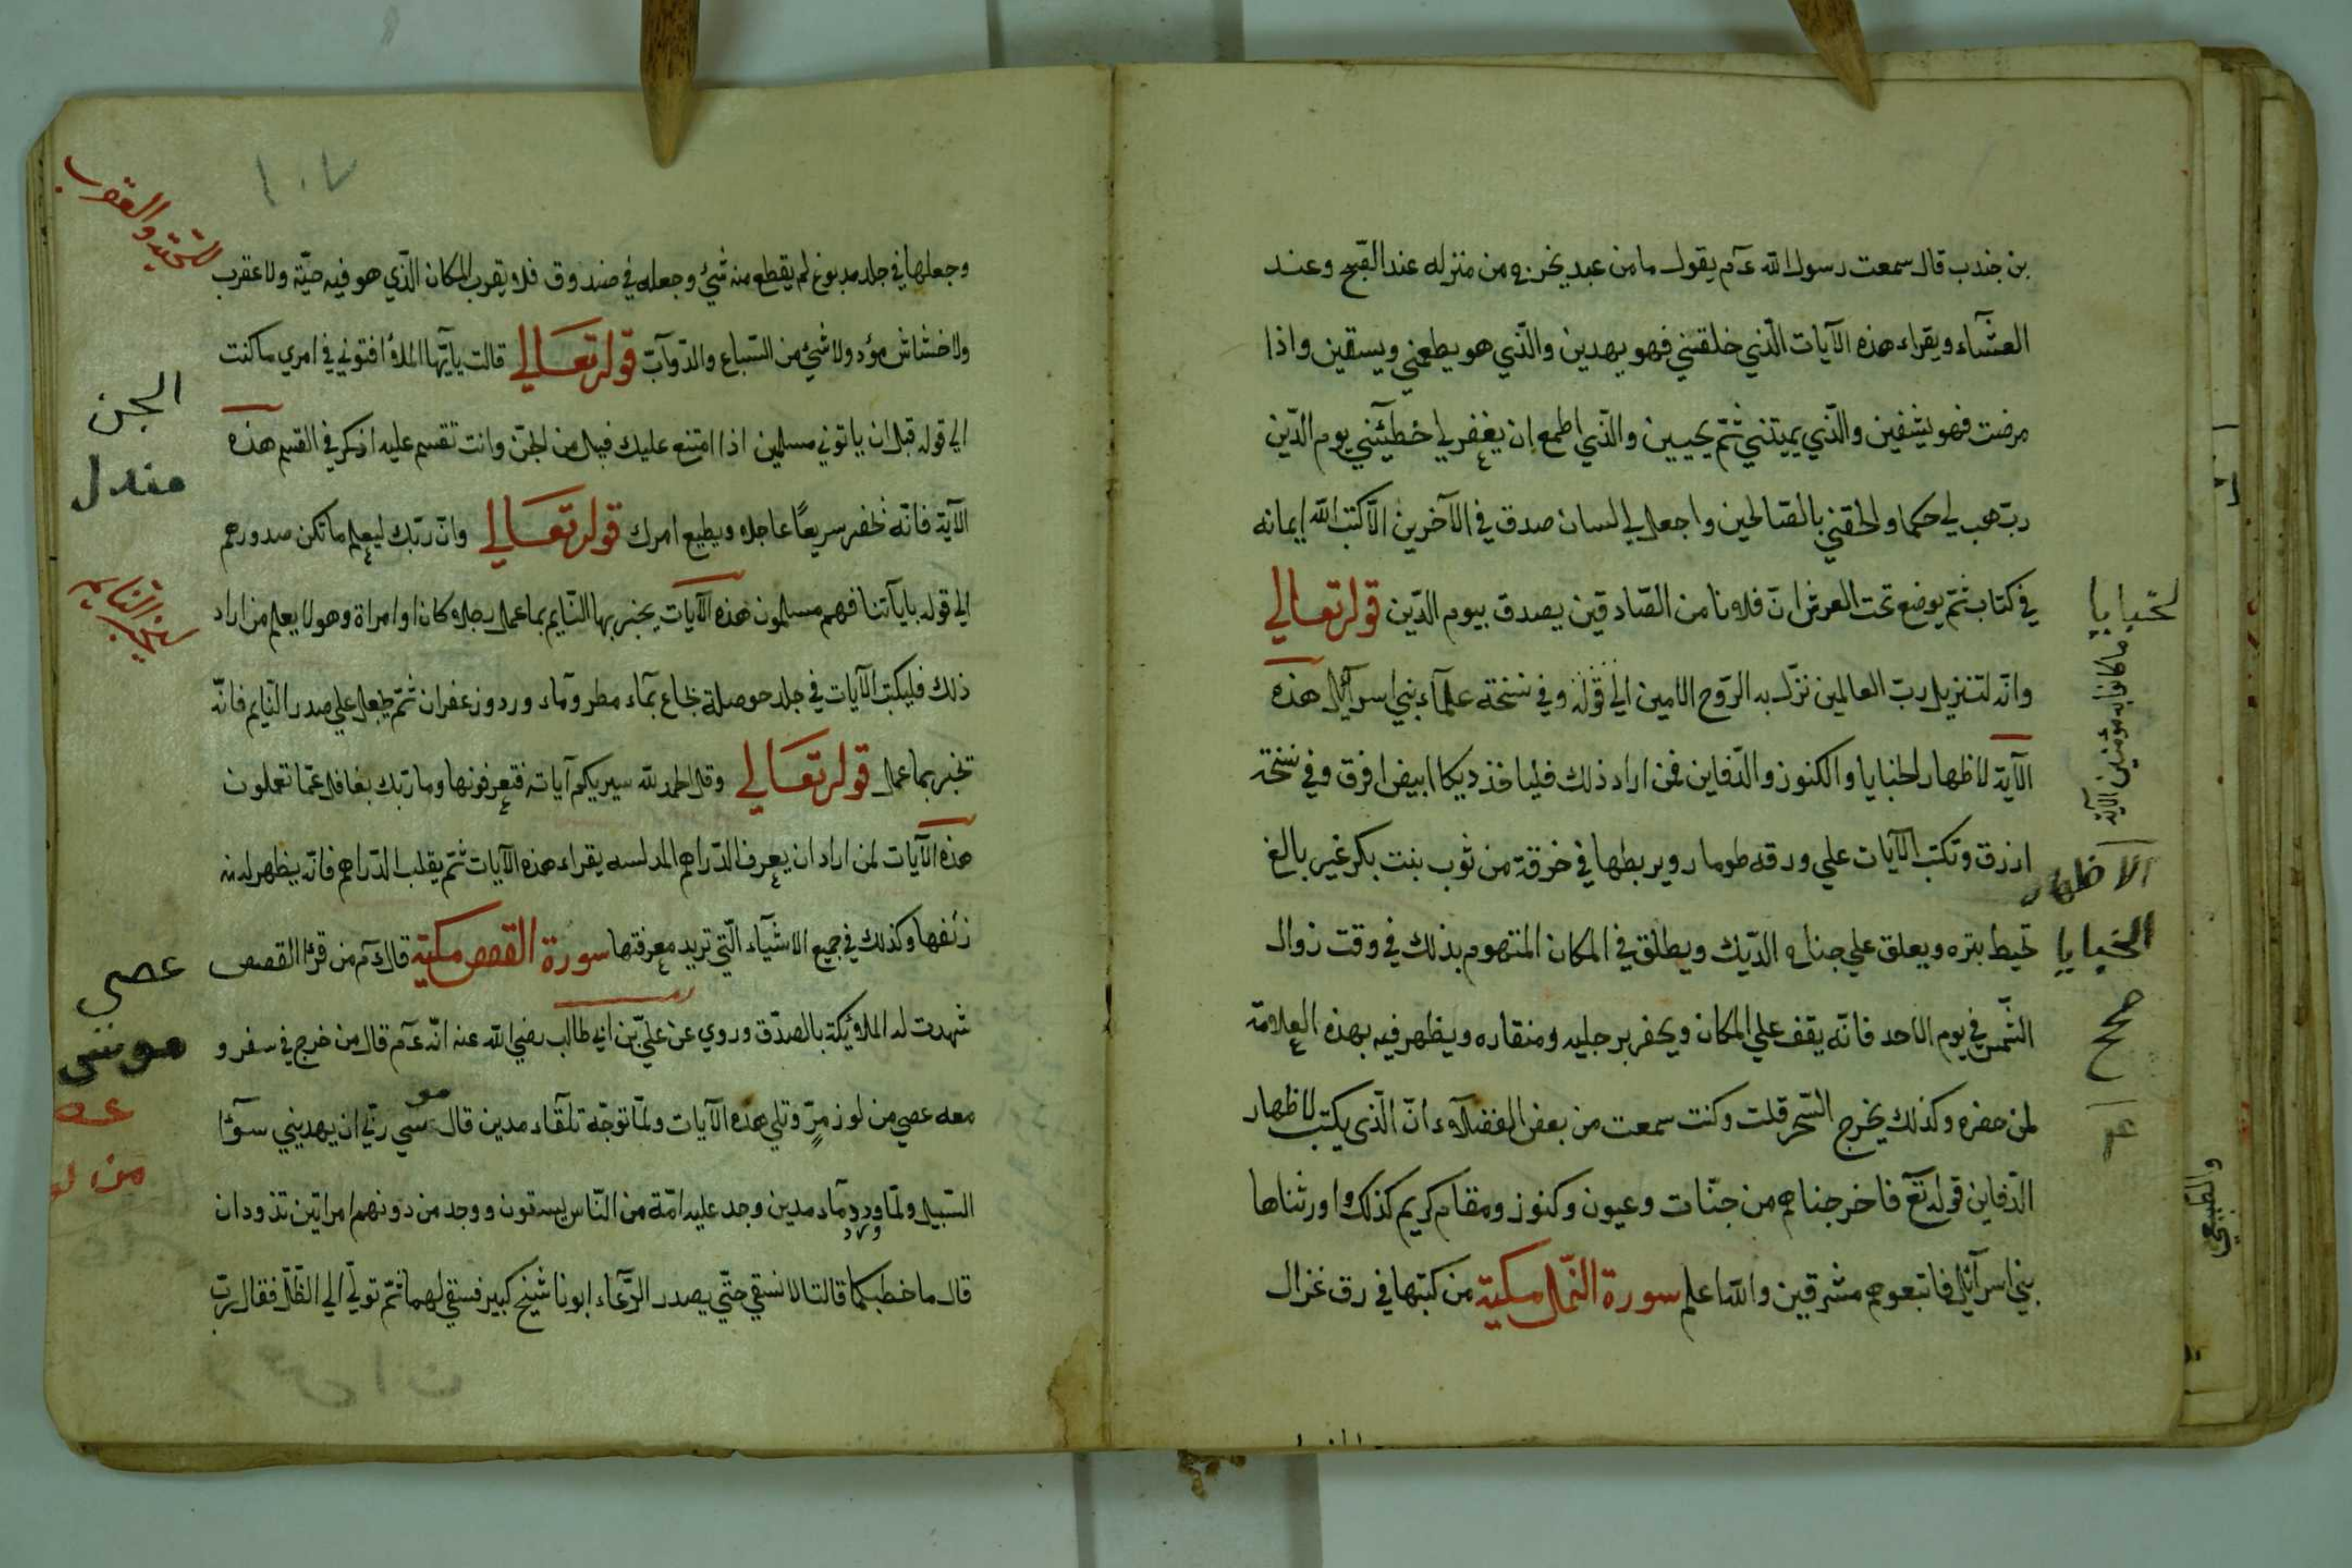 بن جندب قال سمعت رسول الله عآم يقول ما من عبد يخرج من منزله عند الصّبح وعند
العشآء ويقراء هذه الآيات الّذي خلقني فهو يهدين والّذي هو يطعمني ويسقين واذا
مرضت فهو يشفين والّذي يميتني ثمّ يحيين والّذي اطمع ان يغفر لي خطيئتي يوم الدّين
ربّ هب لي حكما والحقني بالصّالحين واجعل لي لسان صدق في الآخرين الّا كتب الله ايمانه
في كتاب ثمّ يوضع تحت العرش انّ فلانا من الصّادقين يصدق بيوم الدّين قوله تعالي
وانّه لتنزيل ربّ العالمين نزّل به الرّوح الامين الي قوله وفي نسخة علمآء بني اسرآئيل هذه
الآية لاظهار الخبايا والكنوز والدّفاين فمن اراد ذلك فلياخذ ديكا ابيض افرق وفي نسخة
ازرق وتكتب الآيات علي ورقه طومار ويربطها في خرقة من ثوب بنت بكر غير بالغ
تحيط بتره ويعلق علي جناح الدّيك ويطلق في المكان المتهوم بذلك في وقت زوال
الشّمس في يوم الاحد فانّه يقف علي المكان ويحفر برجليه ومنقاره ويظهر فيه بهذه العلامة
لمن حضره وكذلك يخرج السّحر قلت وكنت سمعت من بعض الفضلآء انّ الّذي يكتب لاظهار
الدّفاين قوله تعآ فاخرجناهم من جنّات وعيون وكنوز ومقام كريم كذلك واورثناها
بني اسرآئيل فاتبعوهم مشرقين والله اعلم سورة النّمل مكية من كتبها في رق غزال
لخبايا
ما كانوا به مؤمنين الآية
الاظهار
الخبايا
صحح
١٠٧
وجعلها في جلد مدبوغ لم يقطع منه شيء وجعله في صندوق فلا يقرب المكان الّذي هو فيه حيّة ولا عقرب
ولا خشاش مؤذ ولا شيء من السّباع والدّوآبّ قوله تعالي قالت يآيّها الملؤا افتوني في امري ما كنت
الي قوله قبل ان ياتوني مسلمين اذا امتنع عليك قبيل من الجنّ وانت تقسم عليه اذكر في القسم هذه
الآية فانّه يحضر سريعًا عاجلا ويطيع امرك قوله تعالي وانّ ربّك ليعلم ما تكن صدورهم
الي قوله باياتنا فهم مسلمون هذه الآيات يخبر بها النّايم بما عمل رجلا كان او امراة وهو لا يعلم من اراد
ذلك فليكتب الآيات في جلد حوصلة بماء مطر ومآء ورد وزعفران ثمّ يجعل علي صدر النّايم فانّه
تخبر بما عمل قوله تعالي وقل الحمد لله سيريكم آياته فتعرفونها وما ربّك بغافل عمّا تعملون
هذه الآيات لمن اراد ان يعرف الدّراهم المدلسه يقراء هذه الآيات ثمّ يقلب الدّراهم فانّه يظهر له
زئفها وكذلك في جميع الاشيآء الّتي تريد معرفتها سورة القصص مكيّة قال عآم من قرا القصص
شهدت له الملائكة بالصدّق وروي عن عليّ بن ابي طالب رضي الله عنه انّه عآم قال من خرج في سفر و
معه عصي من لوز مرّ وتلي هذه الآيات ولمّا توجّه تلقآء مدين قال موسي ربّي ان يهديني سوآء
السّبيل ولمّا ورد مآء مدين وجد عليه امّة من النّاس يسقون ووجد من دونهم امراتين تذودان
قال ما خطبكما قالتا لا نسقي حتّي يصدر الرّعآء ابونا شيخ كبير فسقي لهما ثمّ تولّي الي الظّلّ فقال ربّ
للحية والعقرب
الجن
مندل
النايم
عصي
موسي
عصـ
من لو